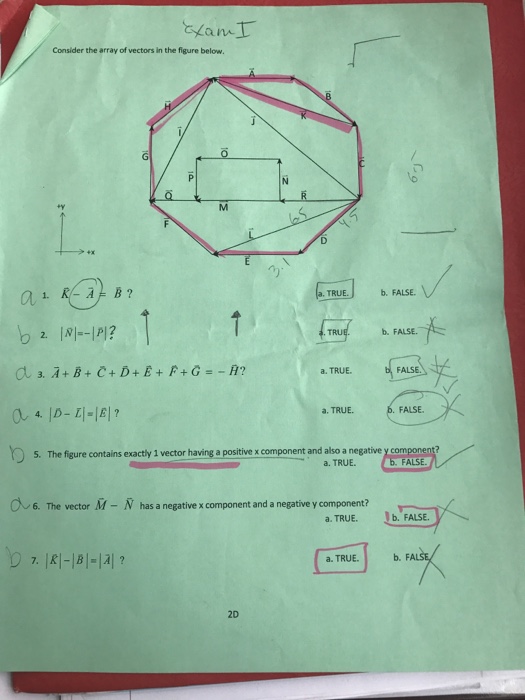 Exam I
Consider the array of vectors in the figure below.
A⃗
B⃗
H⃗
K⃗
I⃗
J⃗
G⃗
O⃗
C⃗
P⃗
N⃗
Q⃗
R⃗
M⃗
+y
+x
F⃗
65
4.5
L⃗
D⃗
E⃗
3.1
a 1. K⃗ - A⃗ = B⃗ ? a. TRUE. b. FALSE.
b 2. |N⃗|=-|P⃗|? a. TRUE. b. FALSE.
a 3. A⃗ + B⃗ + C⃗ + D⃗ + E⃗ + F⃗ + G⃗ = - H⃗? a. TRUE. b. FALSE.
a 4. |D⃗ - L⃗|=|E⃗| ? a. TRUE. b. FALSE.
b 5. The figure contains exactly 1 vector having a positive x component and also a negative y component?
a. TRUE. b. FALSE.
a 6. The vector M⃗ - N⃗ has a negative x component and a negative y component?
a. TRUE. b. FALSE.
b 7. |K⃗|-|B⃗|=|A⃗| ? a. TRUE. b. FALSE.
2D